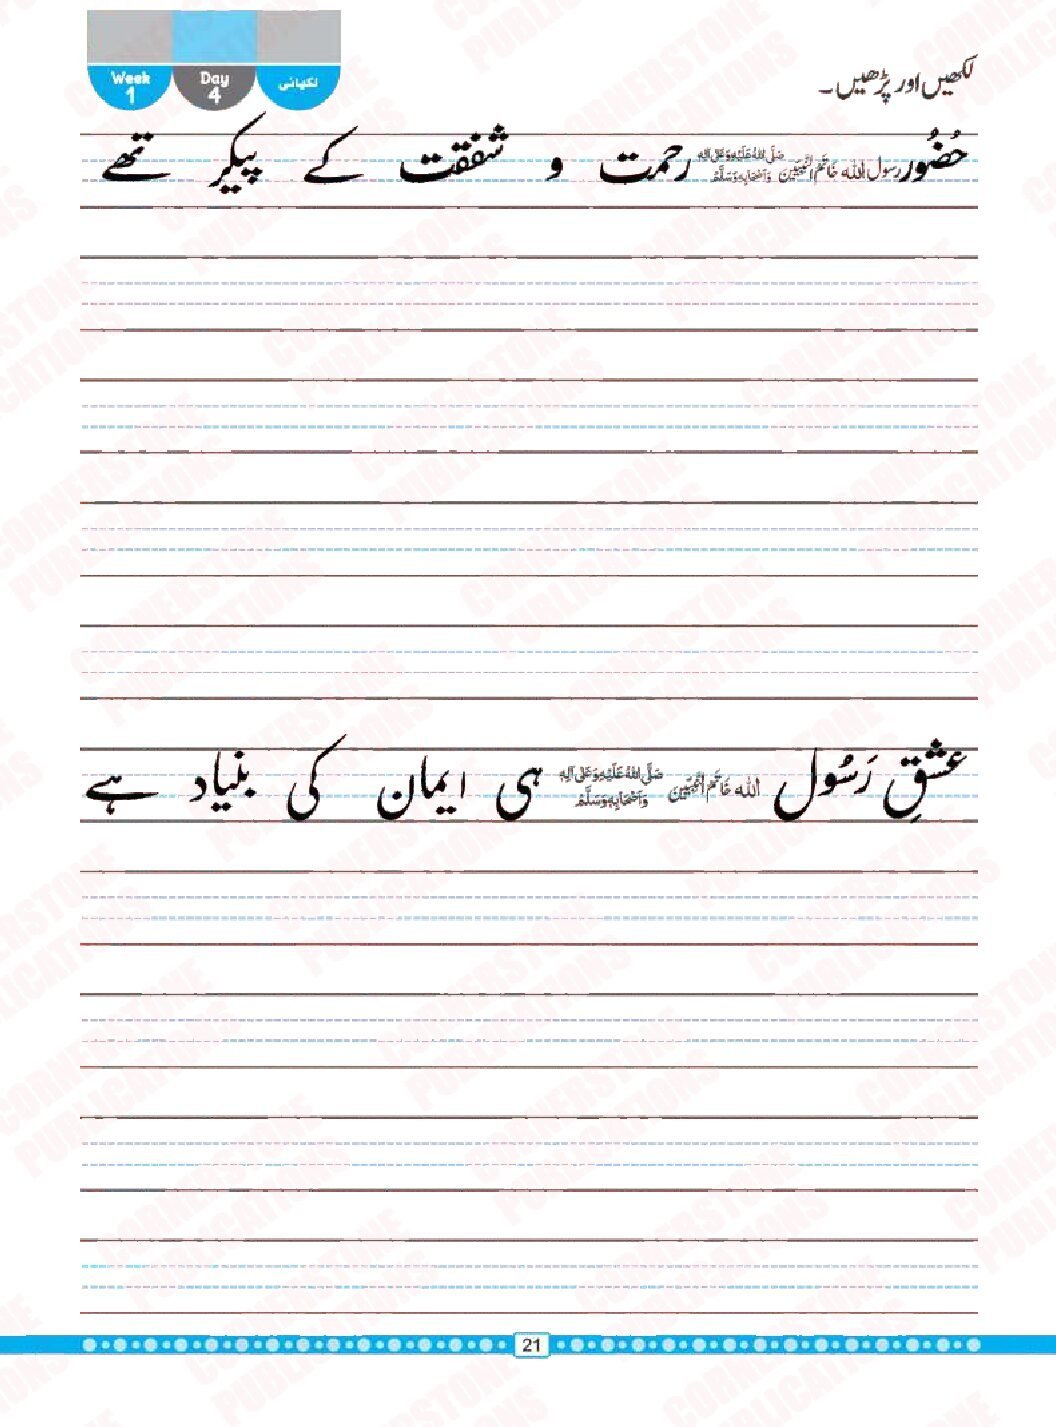 لکھیں اور پڑھیں۔
Week 1
Day 4
لکھائی
حُضُور رسول اللہ خَاتَمُ النَّبِیّٖن صَلَّی اللہُ عَلَیْہِ وَعَلٰی آلِہٖ وَاَصْحَابِہٖ وَسَلَّمَ رحمت و شفقت کے پیکر تھے
عشقِ رَسُول اللہ خَاتَمُ النَّبِیّٖن صَلَّی اللہُ عَلَیْہِ وَعَلٰی آلِہٖ وَاَصْحَابِہٖ وَسَلَّمَ ہی ایمان کی بنیاد ہے
21
CORNERSTONE PUBLICATIONS